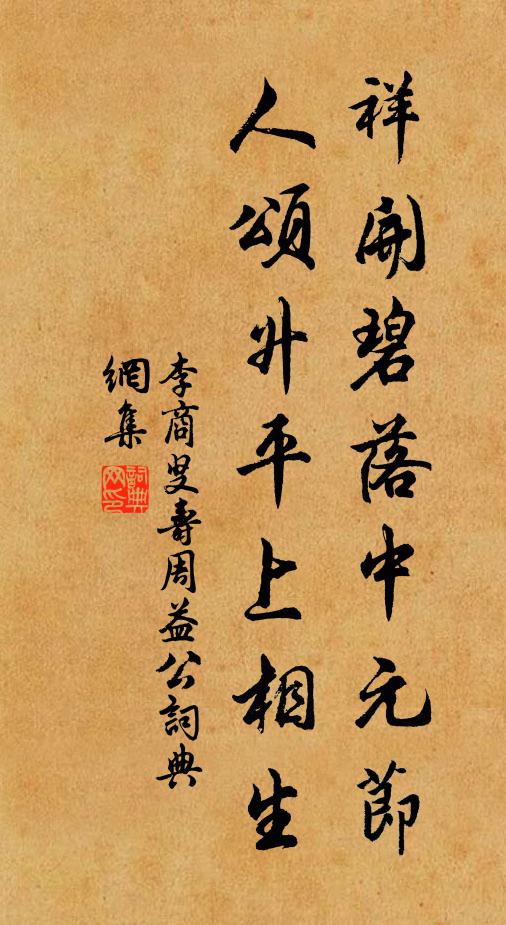 祥開碧落中元節
人頌升平上相生
李商叟壽周益公詞典
網集
詞典網印